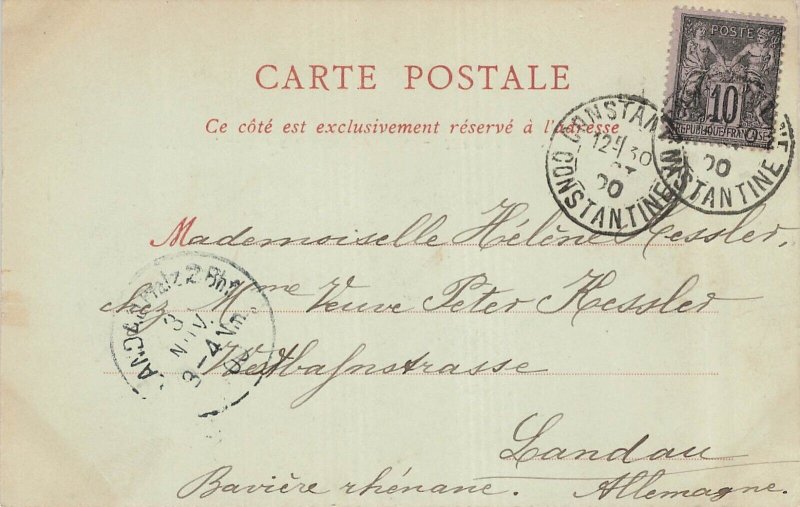 CARTE POSTALE
Ce côté est exclusivement réservé à l'adresse
POSTE
10
REPUBLIQUE FRANÇAISE
CONSTANTINE
12 30
00
CONSTANTINE
CONSTANTINE
00
Mademoiselle Hélène Kessler,
chez Mme Veuve Peter Kessler
Westbahnstrasse
Landau
Bavière rhénane. Allemagne.
LANDAU Pfalz 2 Bhf.
3
NOV.
3-4 Vm.